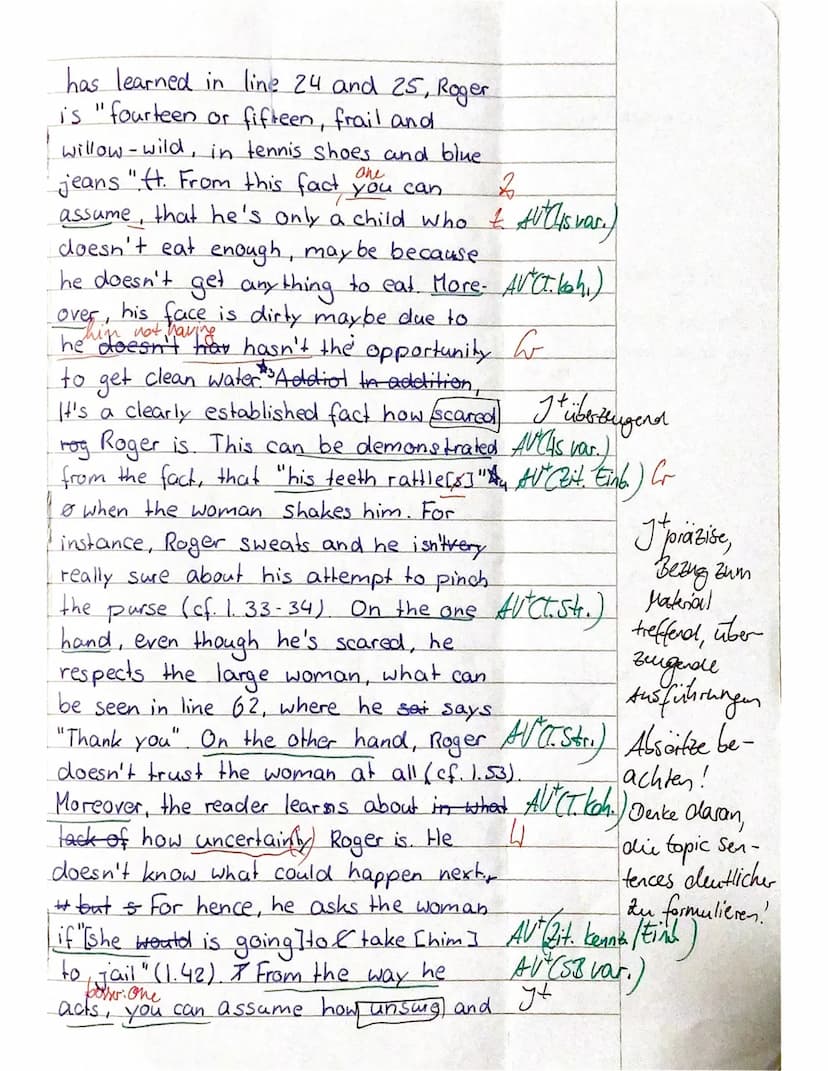 has learned in line 24 and 25, Roger
is "fourteen or fifteen, frail and
willow-wild, in tennis shoes and blue
jeans". From this fact, you can
one
assume, that he's only a child who AV+(Ts var.)
doesn't eat enough, maybe because
he doesn't get anything to eat. More- AV+(T. koh.)
over, his face is dirty maybe due to
him not having
he doesn't hav hasn't the opportunity Gr
to get clean water Addiot In addition,
It's a clearly established fact how scared J+ überzeugend
rog Roger is. This can be demonstrated AV+(Ts var.)
from the fact, that "his teeth rattle[s]" AV+(Zit. Einb.) Gr
when the woman shakes him. For
instance, Roger sweats and he isn't very
really sure about his attempt to pinch
the purse (cf. l. 33-34). On the one AV+(T. Str.)
hand, even though he's scared, he
respects the large woman, what can
be seen in line 62, where he sai says
"Thank you". On the other hand, Roger AV+(T. Str.)
doesn't trust the woman at all (cf. l. 53).
Moreover, the reader learns about in what AV+(T. koh.)
lack of how uncertainly Roger is. He
doesn't know what could happen next,
but s For hence, he asks the woman
if "[she would is going] to take [him] AV+(Zit. kennz/Einb.)
to jail" (l. 42). From the way he AV+(SB var.)
besser: one
acts, you can assume how unsure and J+
J+ präzise,
Bezug zum
Material
treffend, über-
zeugende
Ausführungen
Absätze be-
achten!
Denke daran,
die topic sen-
tences deutlicher
zu formulieren!